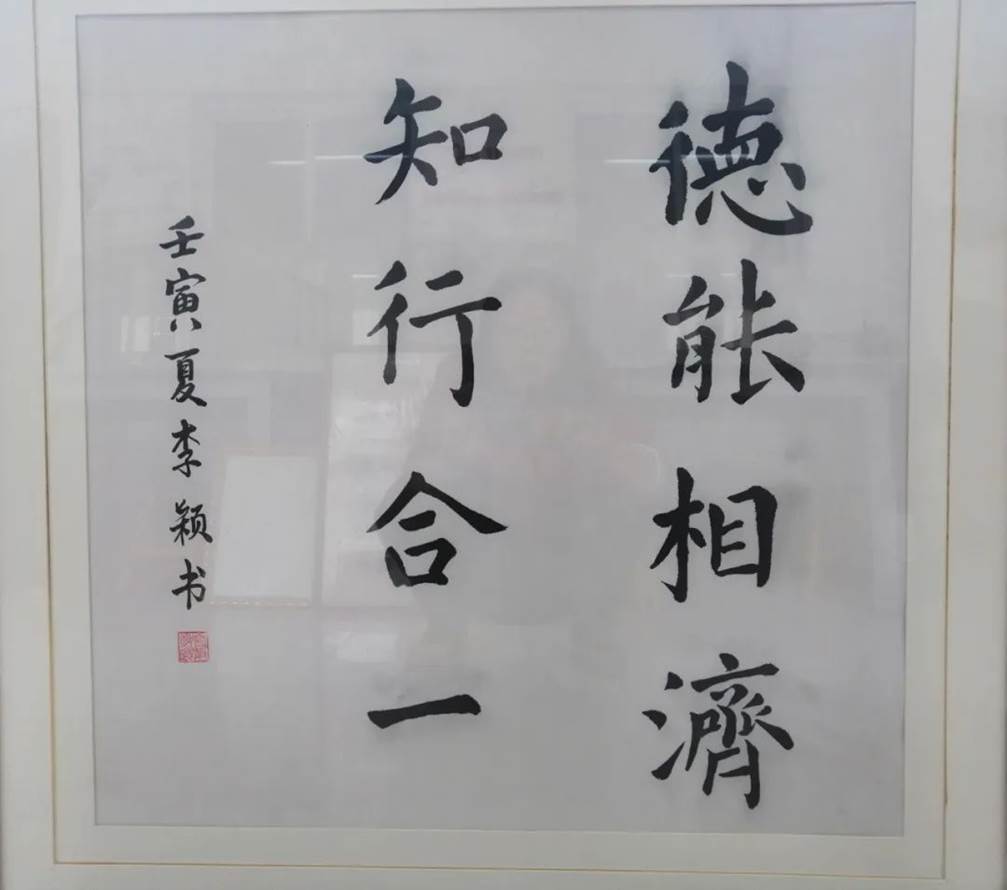 德能相濟
知行合一
壬寅夏李颖书